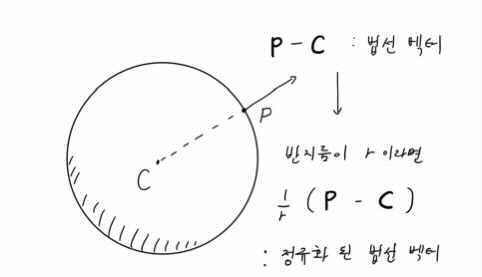 P - C : 법선 벡터
P
C
반지름이 r 이라면
1/r ( P - C )
: 정규화 된 법선 벡터